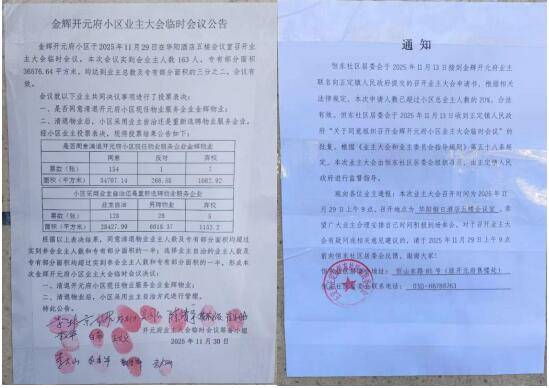 金辉开元府小区业主大会临时会议公告
金辉开元府小区于2025年11月29日在华阳酒店五楼会议室召开业
主大会临时会议。本次会议实到会业主人数163人，专有部分面积
36676.64平方米，均达到业主总数及专有部分面积的三分之二。会议有
效。
会议就以下业主共同决议事项进行了投票表决：
一、是否同意清退开元府小区现任物业服务企业金辉物业；
二、清退物业后，小区采用业主自治还是重新选聘物业服务企业。
经小区业主投票表决，现将投票结果公告如下：
是否同意清退开元府小区现任物业服务企业金辉物业
同意 反对 弃权
票数（张） 154 1
面积（平方米） 34707.14 266.58 1682.92
小区采用业主自治还是重新选聘物业服务企业
业主自治 弃权
票数（张） 128 28 5
面积（平方米） 28427.99 6616.37 1152.2
根据以上表决结果，同意清退物业业主人数及专有部分面积均超过
实到参会业主人数及面积的一半，选择业主自治的业主人数及专
有部分面积均超过实到参会业主人数及面积的一半，形成本
次金辉开元府小区业主大会临时会议决议：
一、清退开元府小区现任物业服务企业金辉物业。
二、清退物业后，小区采用业主自治方式进行管理。
特此公告。
开元府小区业主大会临时会议筹备小组
2025年11月30日
通知
恒东社区居委会于2025年11月13日接到金辉开元府业主
联名向正定镇人民政府提交的召开业主大会申请书，根据相关
法律规定，本次申请人数已超过小区总业主人数的20%，合法
有效。恒东社区居委会于2025年11月13日收到正定镇人民政
府“关于同意组织召开金辉开元府小区业主大会临时会议”的
批复。根据《业主大会和业主委员会指导规则》第五十八条规
定，本次业主大会由恒东社区居委会组织召开，由正定镇人民
政府进行监督指导。
现向各位业主通报：本次业主大会召开时间为2025年11
月29日上午9点，召开地点为华阳假日酒店五楼会议室，希
望广大业主合理安排自己时间积极到场参会。对于召开业主大
会有疑问或相关意见建议的，请于2025年11月29日上午9点
前向恒东社区居委会反馈，谢谢大家！
恒东社区居委会联系电话：